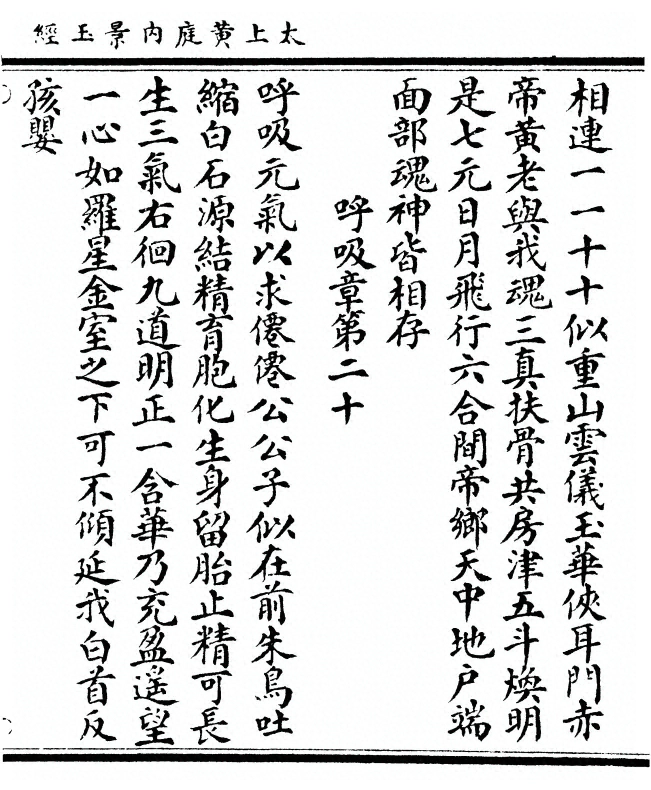 太上黄庭內景玉經
相連一一十十似重山雲儀玉華俠耳門赤
帝黄老與我魂三真扶骨共房津五斗煥明
是七元日月飛行六合間帝鄉天中地户端
面部魂神皆相存
呼吸章第二十
呼吸元氣以求僊僊公公子似在前朱鳥吐
縮白石源結精育胞化生身留胎止精可長
生三氣右徊九道明正一含華乃充盈遥望
一心如羅星金室之下可不傾延我白首反
孩嬰